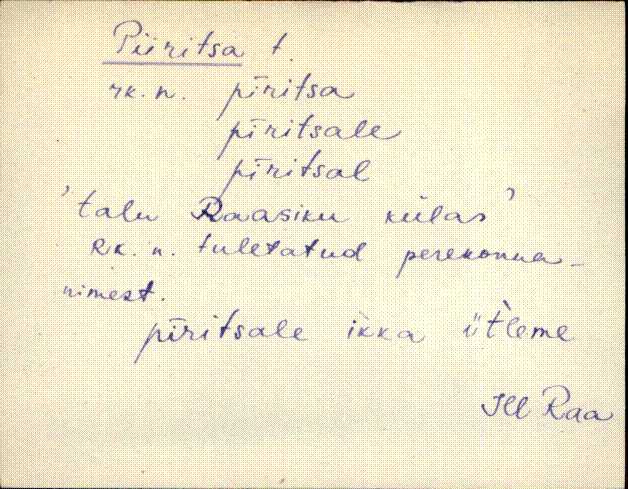 Piiritsa t.
rk. n. pīritsa
pīritsale
pīritsal
'talu Raasiku külas'
Rk. n. tuletatud perekonna-
nimest.
pīritsale ikka ütleme
Jll Raa